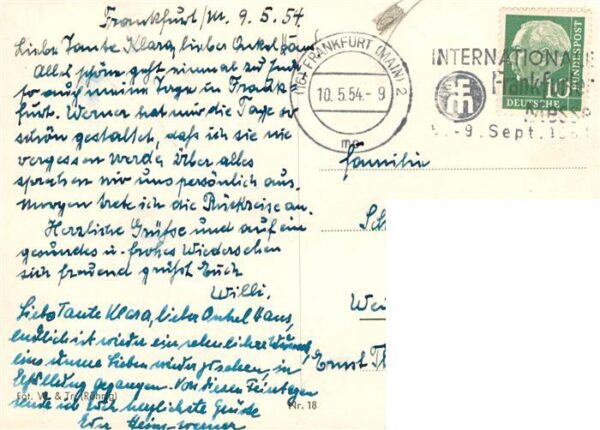 Frankfurt/M. 9.5.54.
Liebe Tante Klara, lieber Onkel Hans!
Alles schöne geht einmal zu Ende
so auch meine Tage in Frank-
furt. Werner hat mir die Tage so
schön gestaltet, daß ich sie nie
vergessen werde. Über alles
sprechen wir uns persönlich aus.
Morgen trete ich die Rückreise an.
Herzliche Grüße und auf ein
gesundes u. frohes Wiedersehen
sich freuend grüßt Euch
Willi.
Liebe Tante Klara, lieber Onkel Hans,
endlich ist wieder ein sehnlicher Wunsch,
eine unserer Lieben wieder zu sehen, in
Erfüllung gegangen. Von diesen Feiertagen
sende ich Euch herzlichste Grüße
Euer Heinz-Werner
Fot. V. & Tr. (Röhrig)
Nr. 18
(16) FRANKFURT (MAIN) 2
10.5.54.-9
mr
INTERNATIONALE
Frankfurter
Messe
-9. Sept. 1954
DEUTSCHE BUNDESPOST
10
Familie
Sch
Wei
Ernst Th